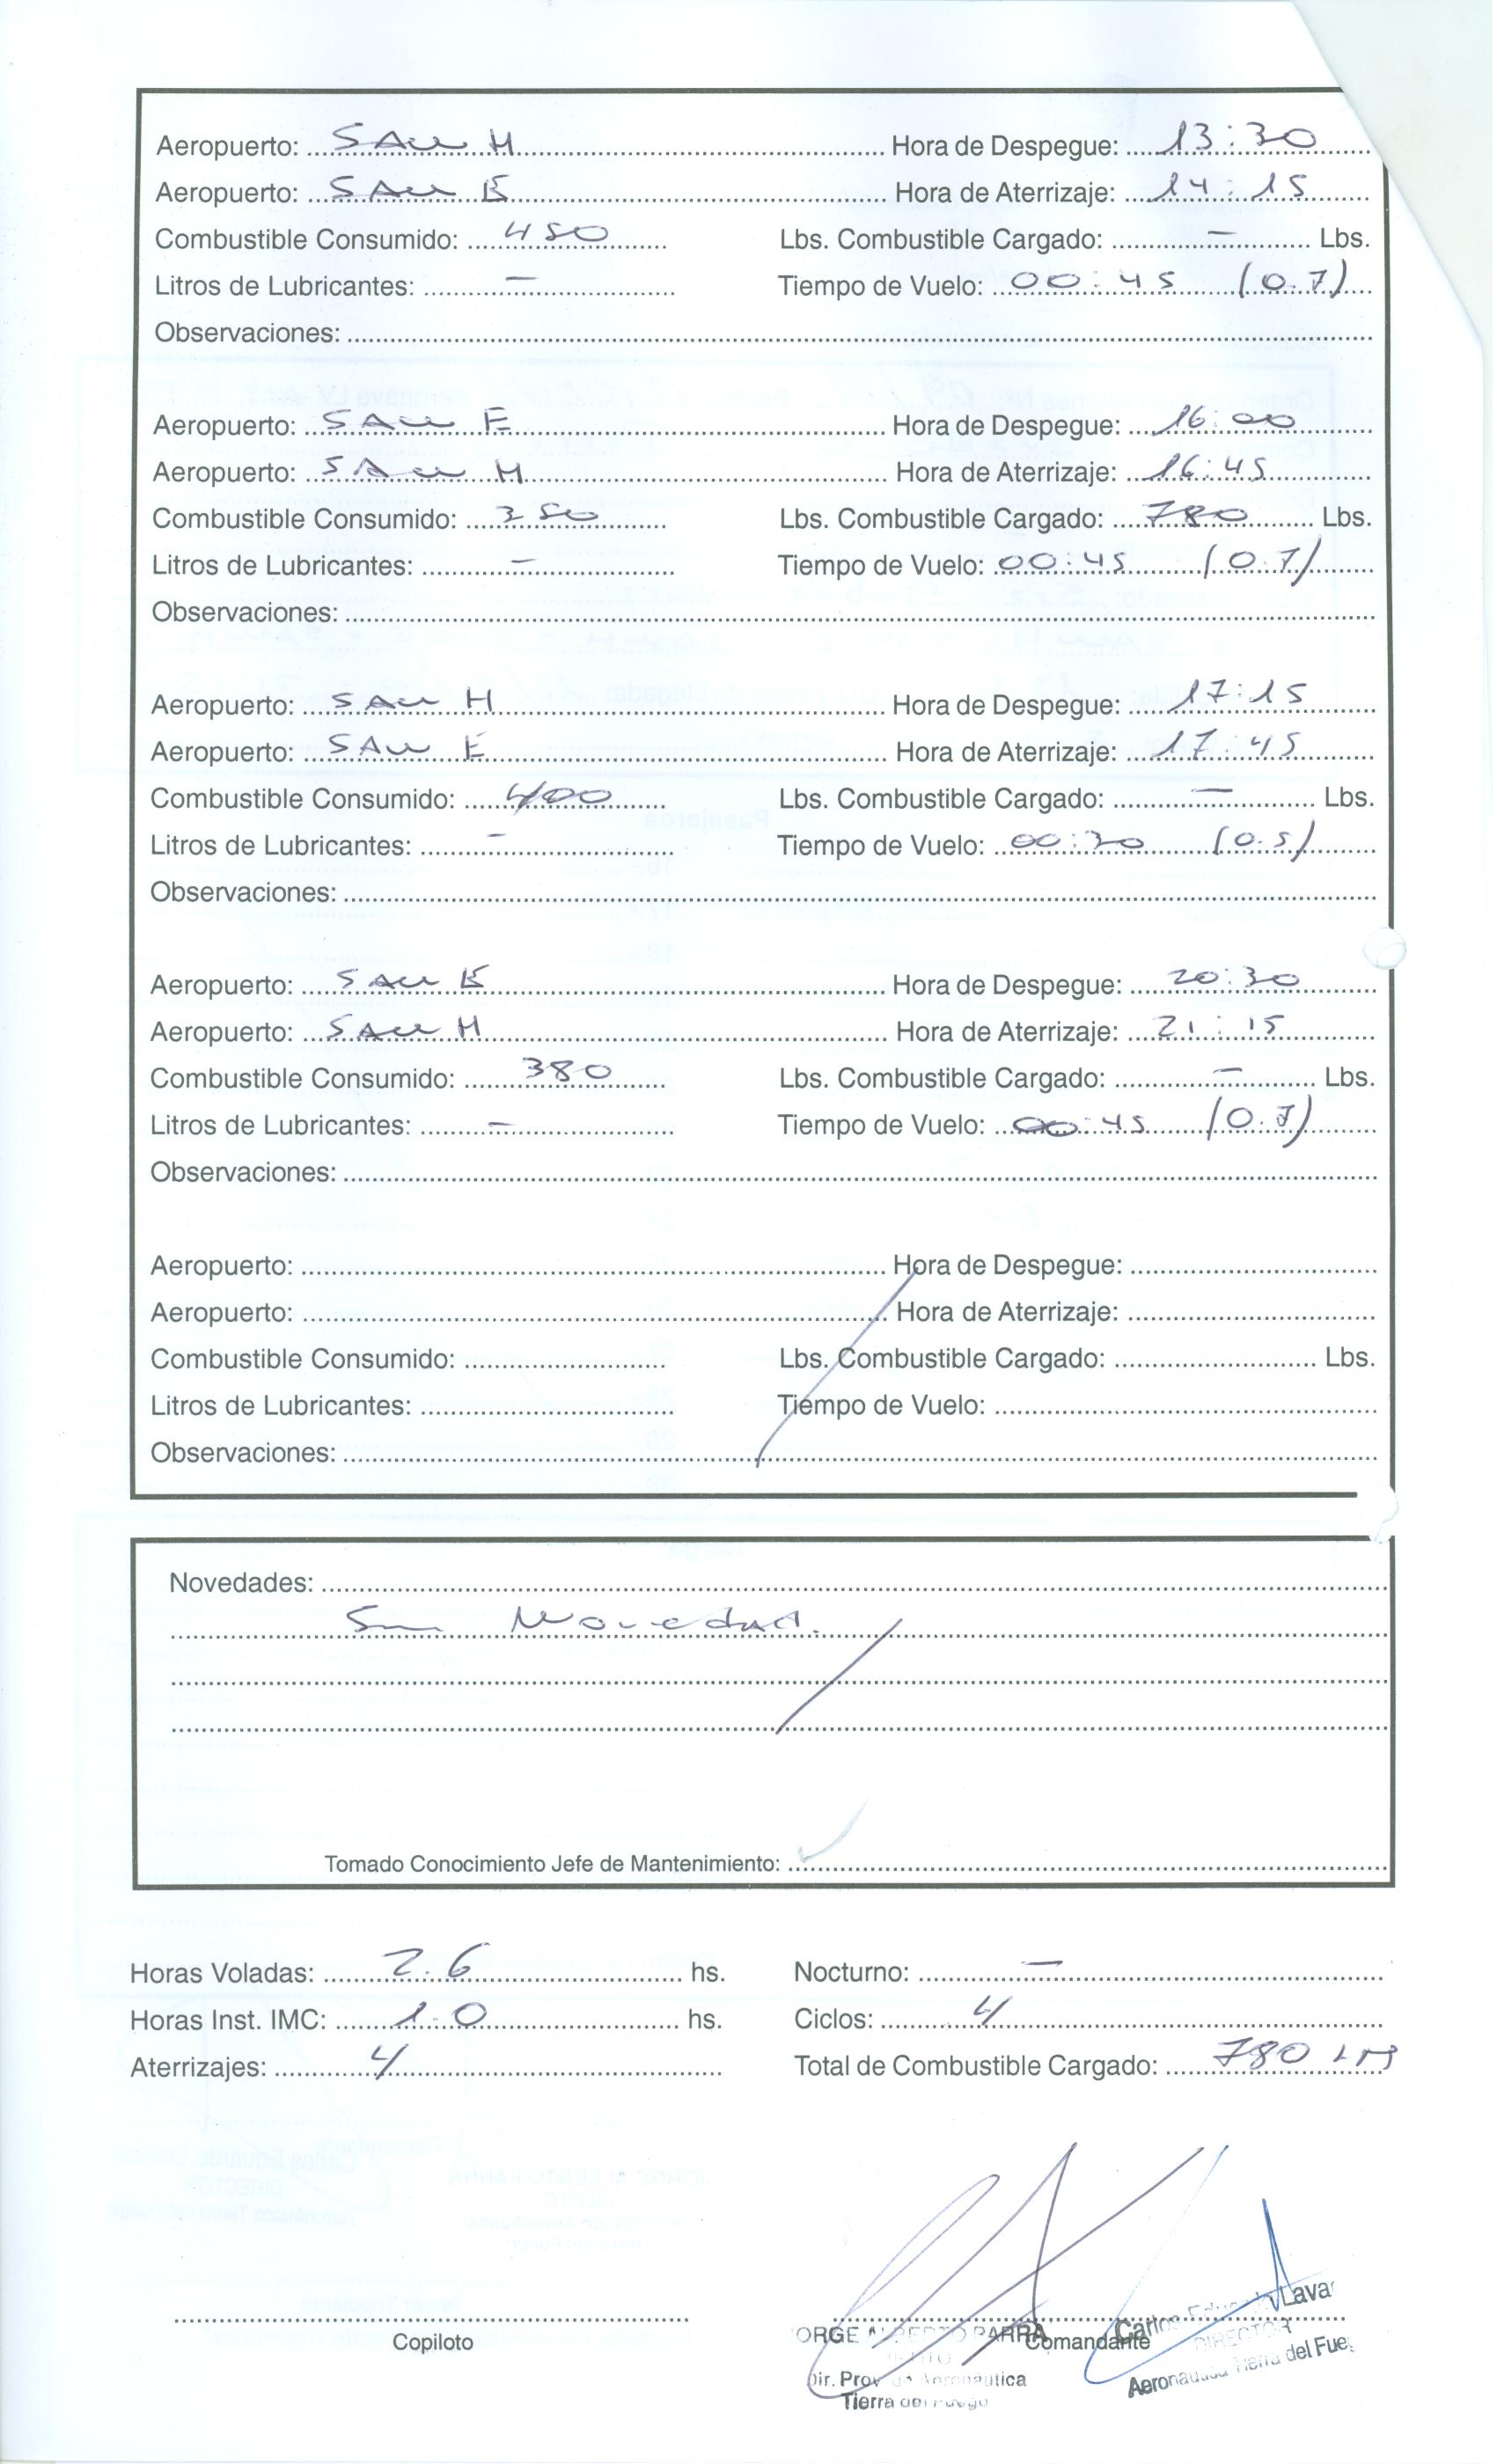 Aeropuerto: SAWH Hora de Despegue: 13:30
Aeropuerto: SAWE Hora de Aterrizaje: 14:15
Combustible Consumido: 450 Lbs. Combustible Cargado: — Lbs.
Litros de Lubricantes: — Tiempo de Vuelo: 00:45 (0.7)
Observaciones:
Aeropuerto: SAWE Hora de Despegue: 16:00
Aeropuerto: SAWH Hora de Aterrizaje: 16:45
Combustible Consumido: 350 Lbs. Combustible Cargado: 780 Lbs.
Litros de Lubricantes: — Tiempo de Vuelo: 00:45 (0.7)
Observaciones:
Aeropuerto: SAWH Hora de Despegue: 17:15
Aeropuerto: SAWE Hora de Aterrizaje: 17:45
Combustible Consumido: 400 Lbs. Combustible Cargado: — Lbs.
Litros de Lubricantes: — Tiempo de Vuelo: 00:30 (0.5)
Observaciones:
Aeropuerto: SAWE Hora de Despegue: 20:30
Aeropuerto: SAWH Hora de Aterrizaje: 21:15
Combustible Consumido: 380 Lbs. Combustible Cargado: — Lbs.
Litros de Lubricantes: — Tiempo de Vuelo: 00:45 (0.7)
Observaciones:
Aeropuerto: Hora de Despegue:
Aeropuerto: Hora de Aterrizaje:
Combustible Consumido: Lbs. Combustible Cargado: Lbs.
Litros de Lubricantes: Tiempo de Vuelo:
Observaciones:
Novedades:
Sin Novedad.
Tomado Conocimiento Jefe de Mantenimiento:
Horas Voladas: 2.6 hs. Nocturno: —
Horas Inst. IMC: 1.0 hs. Ciclos: 4
Aterrizajes: 4 Total de Combustible Cargado: 780
Copiloto Comandante
ORGE ALBERTO PARRA
Dir. Prov. de Aeronáutica
Tierra del Fuego
Carlos Eduardo Lava
DIRECTOR
Aeronautica Tierra del Fue